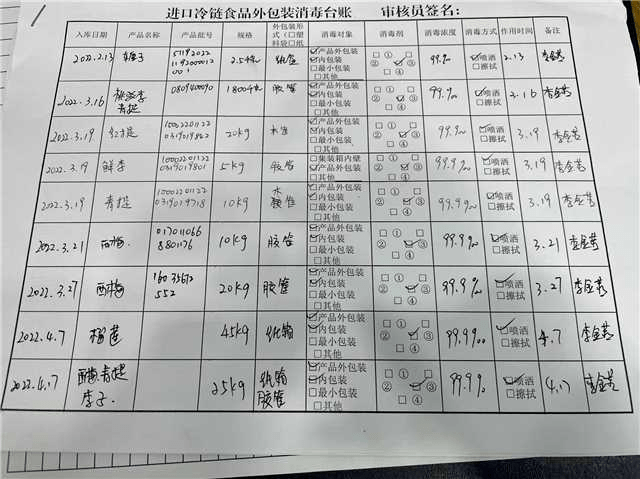 进口冷链食品外包装消毒台账 审核员签名：
入库日期 产品名称 产品批号 规格 外包装形式（□塑料袋□纸 消毒对象 消毒剂 消毒浓度 消毒方式 作用时间 备注
2022.2.13 51192022 1192000012001 纸箱 ☑产品外包装 ☑内包装 □最小包装 □其他 □① □ ②□ ☑③ □④ 99.9% ☑喷洒 □擦拭 2.13
2022.3.16 青提 0809400090 胶筐 ☑产品外包装 ☑内包装 □最小包装 □其他 □① □ ②□ ☑③ □④ 99.9% ☑喷洒 □擦拭 3.16
2022.3.19 红提 10002201122 0319019822 20kg ☑产品外包装 ☑内包装 □最小包装 □其他 □① □ ②□ ☑③ □④ 99.9% ☑喷洒 □擦拭 3.19
2022.3.19 鲜李 10002201122 0319019801 5kg 胶筐 □集装箱内壁 ☑产品外包装 ☑内包装 □最小包装 □其他 □① □ ②□ ☑③ □④ 99.9% ☑喷洒 □擦拭 3.19
2022.3.19 青提 10002201122 0319019718 10kg ☑产品外包装 ☑内包装 □最小包装 □其他 □① □ ②□ ☑③ □④ 99.9% ☑喷洒 □擦拭 3.19
2022.3.21 西梅 017011066 8801176 10kg 胶筐 ☑产品外包装 ☑内包装 □最小包装 □其他 □① □ ②□ ☑③ □④ 99.9% ☑喷洒 □擦拭 3.21
2022.3.27 西梅 16035672 552 20kg 胶筐 ☑产品外包装 ☑内包装 □最小包装 □其他 □① □ ②□ ☑③ □④ 99.9% ☑喷洒 □擦拭 3.27
2022.4.7 榴莲 45kg 纸箱 ☑产品外包装 ☑内包装 □最小包装 □其他 □① □ ②□ ☑③ □④ 99.9% ☑喷洒 □擦拭 4.7
2022.4.17 西梅.青提 李子. 25kg 纸箱 胶筐 ☑产品外包装 ☑内包装 □最小包装 □其他 □① □ ②□ ☑③ □④ 99.9% ☑喷洒 □擦拭 4.17